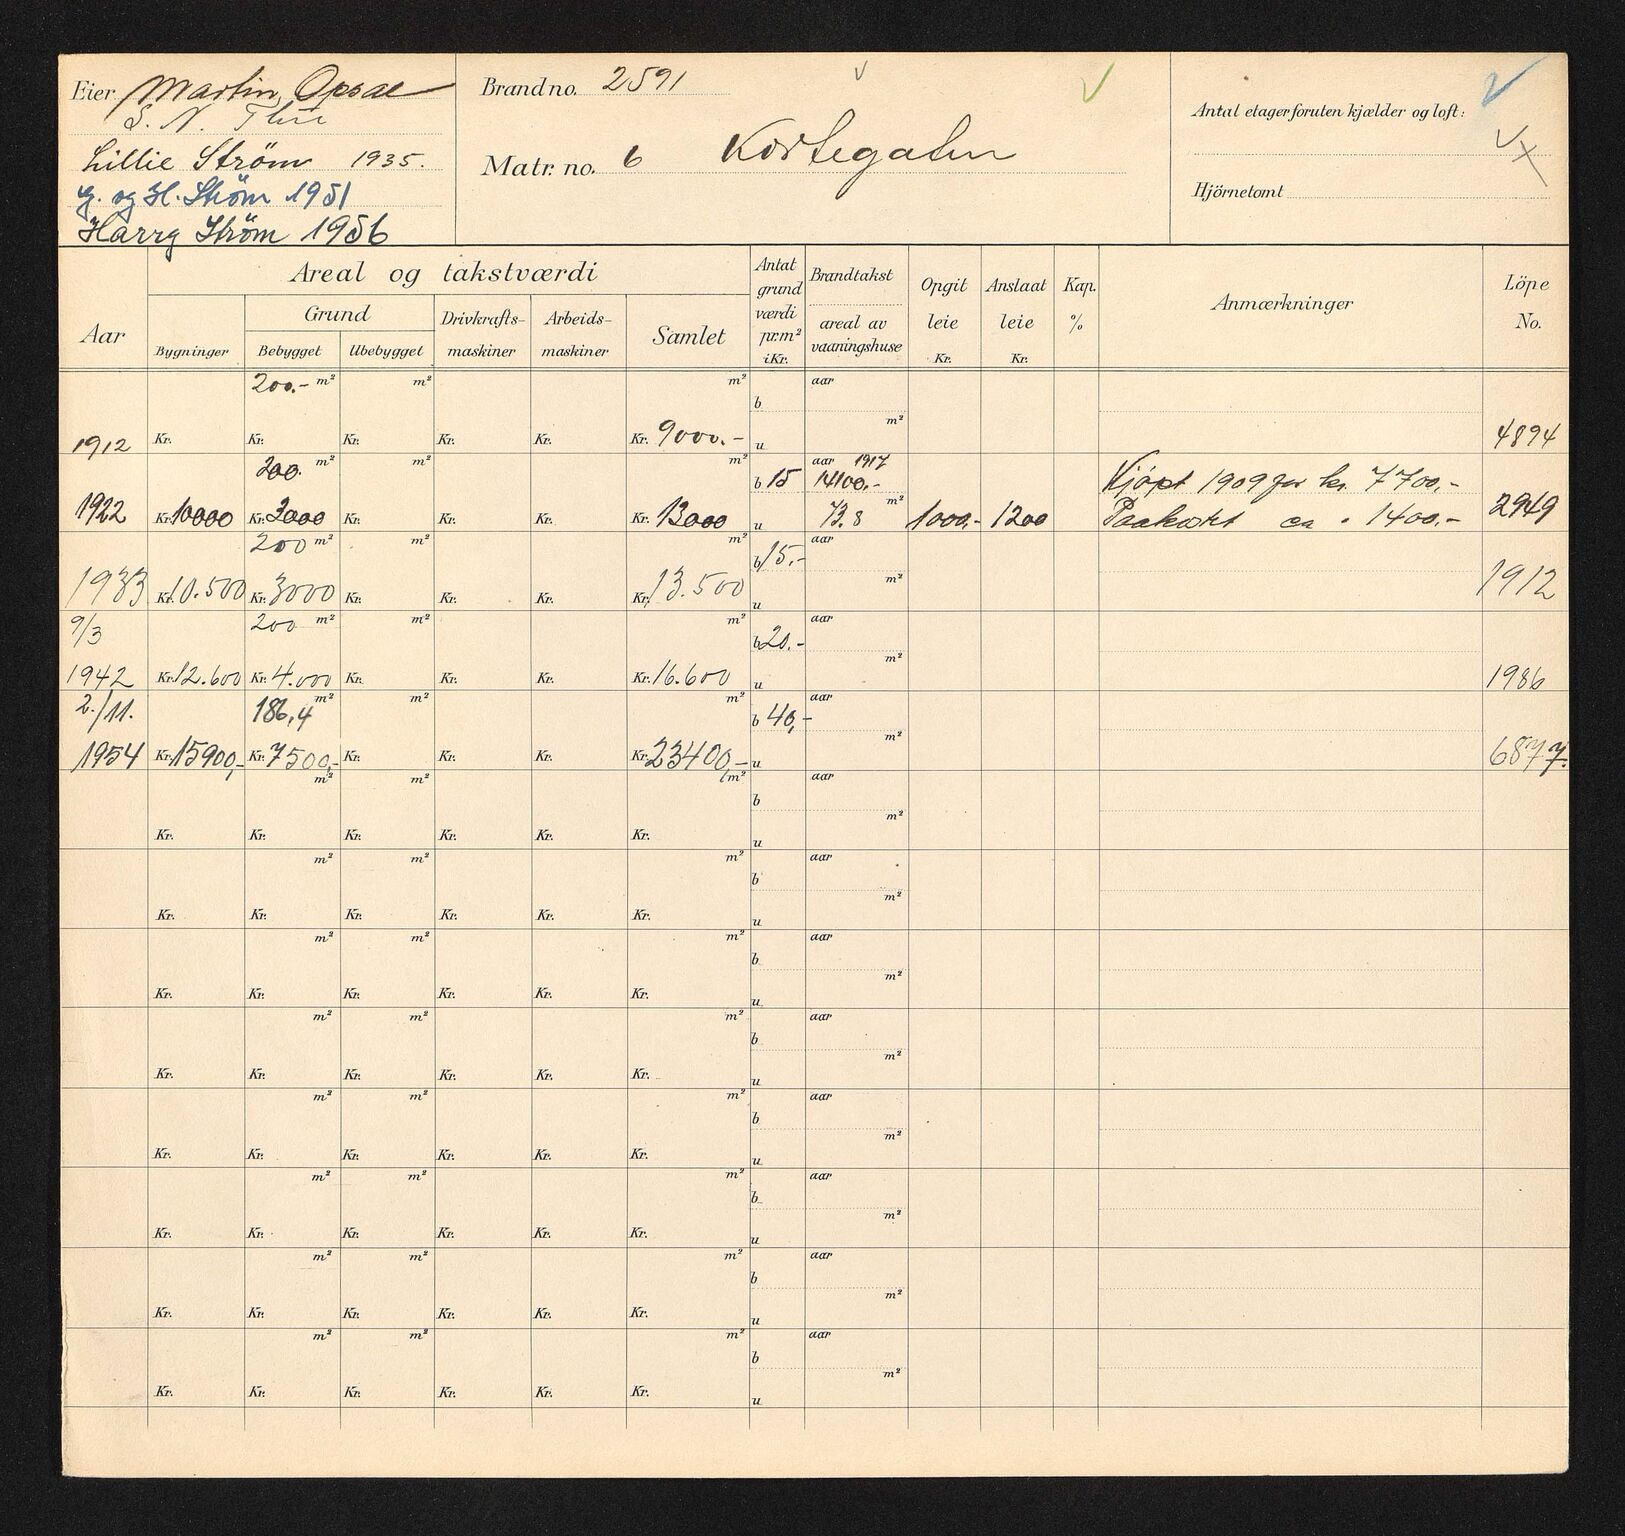 Eier Martin Opsal
S. N. Thu
Lillie Ström 1935.
og H. Ström 1951
Harry Ström 1956
Brand no. 2591
Matr. no. 6 Kortegaten
Antal etager foruten kjælder og loft:
Hjörnetomt
Aar
Areal og takstværdi
Bygninger
Grund
Bebygget Ubebygget
Drivkrafts-
maskiner
Arbeids-
maskiner
Samlet
Antat
grund
værdi
pr.m²
i Kr.
Brandtakst
areal av
vaaningshuse
Opgit
leie
Kr.
Anslaat
leie
Kr.
Kap.
%
Anmærkninger
Löpe
No.
200.- m² m² m² b aar
m²
1912 Kr. Kr. Kr. Kr. Kr. Kr. 9000.- u 4894
200. m² m² m² b 15 aar 1917
14100.- Kjöpt 1909 for kr. 7700.-
m²
1922 Kr. 10000 Kr. 3000 Kr. Kr. Kr. Kr. 13000 u 73.8 1000.- 1200 Paakost ca " 1400.- 2949
200 m² m² m² b 15.- aar
m²
1933 Kr. 10.500 Kr. 3000 Kr. Kr. Kr. Kr. 13.500 u 1912
9/3 200 m² m² m² b 20.- aar
m²
1942 Kr. 12.600 Kr. 4.000 Kr. Kr. Kr. Kr. 16.600 u 1986
2./11. 186,4 m² m² m² b 40,- aar
m²
1954 Kr. 15900,- Kr. 7500,- Kr. Kr. Kr. Kr. 23400,- u 6877.
m² m² m² b aar
m²
Kr. Kr. Kr. Kr. Kr. Kr. u
m² m² m² b aar
m²
Kr. Kr. Kr. Kr. Kr. Kr. u
m² m² m² b aar
m²
Kr. Kr. Kr. Kr. Kr. Kr. u
m² m² m² b aar
m²
Kr. Kr. Kr. Kr. Kr. Kr. u
m² m² m² b aar
m²
Kr. Kr. Kr. Kr. Kr. Kr. u
m² m² m² b aar
m²
Kr. Kr. Kr. Kr. Kr. Kr. u
m² m² m² b aar
m²
Kr. Kr. Kr. Kr. Kr. Kr. u
m² m² m² b aar
m²
Kr. Kr. Kr. Kr. Kr. Kr. u